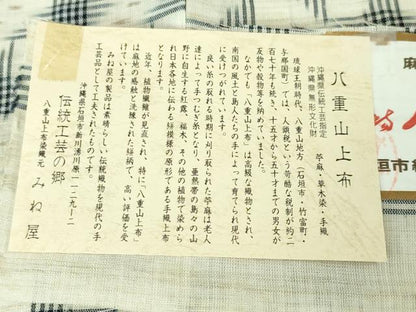 八重山上布
沖縄県伝統工芸指定
沖縄県無形文化財
苧麻・草木染・手織
琉球王朝時代、八重山地方(石垣市・竹富町・
与那国町)では、人頭税という苛酷な税制が約二
百七十年も続き、十五才から五十才までの男女が
反物や穀物等を納めていました。
なかでも「八重山上布」は高級な織物とされ、
南国の風土と島人たちの手によって育てられ現代
に受けつがれています。
良い糸の取れる時期に刈り取られた苧麻は老人
達によって手つむぎ糸となり、亜熱帯の島々の山
野に自生する紅露、福木、その他の植物で染めら
れ日本各地に伝わる絣模様の原形である手織上布
となります。
近年、植物繊維が見直され、特に「八重山上布」
は麻地の感触と洗練された絣柄で、高い評価を受
けています。
みね屋の製品は素晴らしい伝統織物を現代の手
工芸品として工夫されたものです。
沖縄県石垣市新川湧川原一一二九ー二
伝統工芸の郷
八重山上布染織元 みね屋
麻
垣市